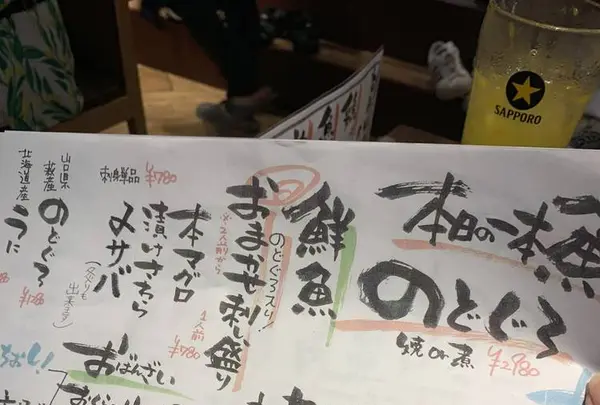 SAPPORO
本日の一本
のどぐろ
焼or煮 ¥2980
鮮魚
のどぐろ入り!
おまかせ刺し盛り
※2人前から
1人前
¥780
刺身単品 ¥780
本マグロ
漬けさわら
〆サバ
(炙りも出来ます)
山口県萩産
のどぐろ
¥1280
北海道産
うに
おばんざい